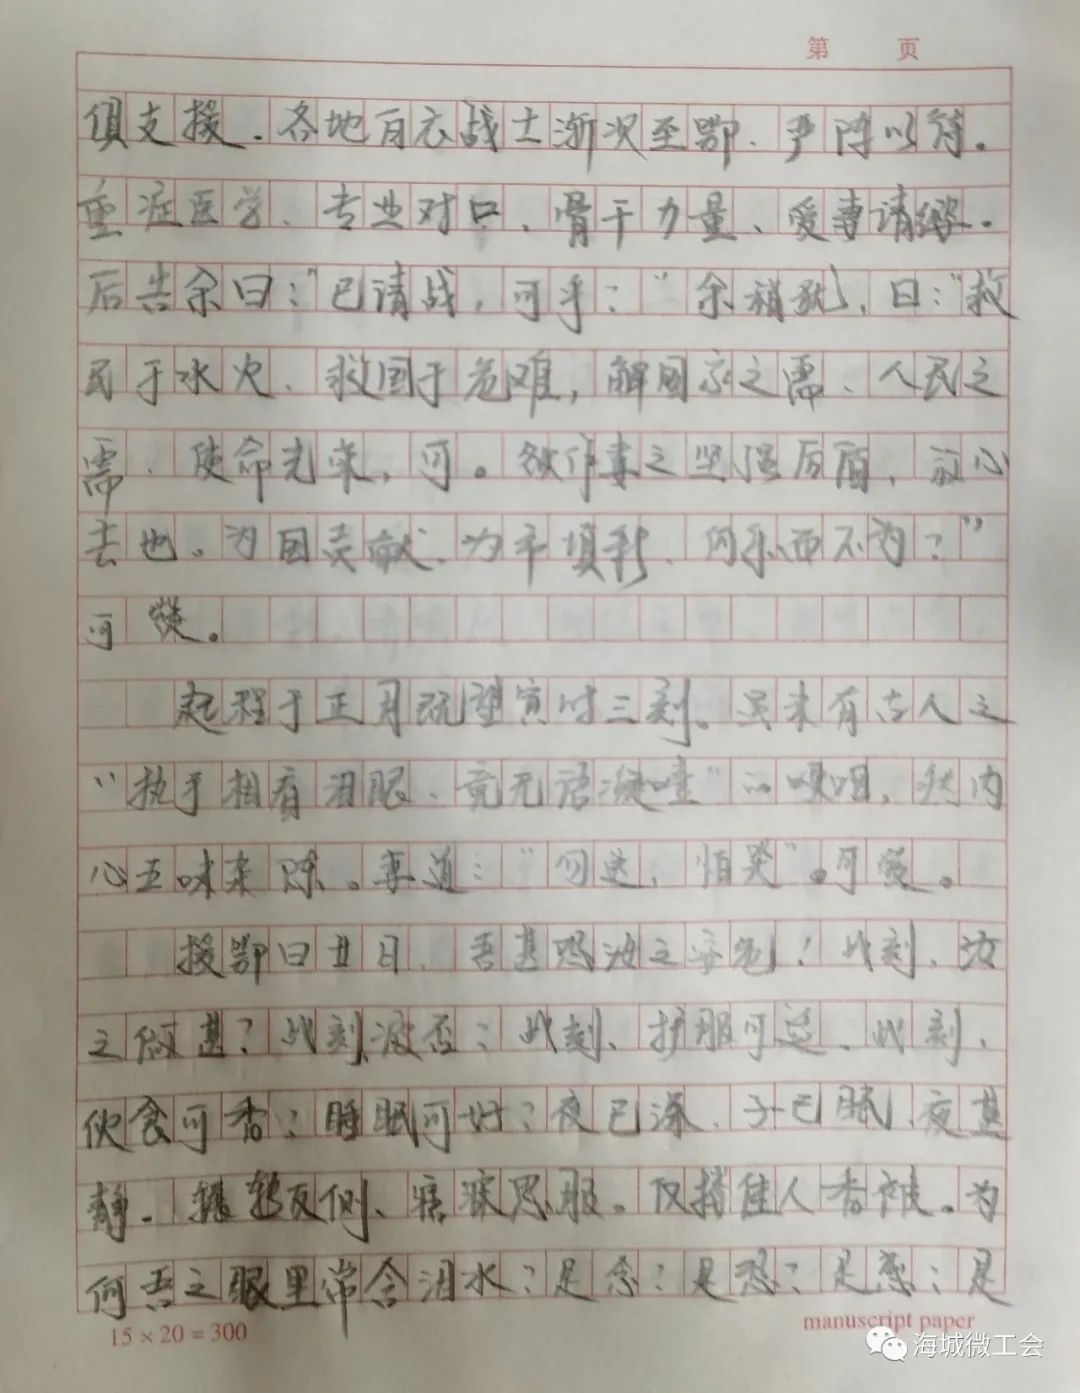 第 页
俱支援.各地白衣战士渐次至鄂.严阵以待。
重症医学、专业对口、骨干力量、爱妻请缨.
后告余曰:"已请战,可乎:"余稍犹,曰:"救
民于水火、救国于危难,解国家之需、人民之
需.使命光荣,可。欲作妻之坚强后盾,放心
去也。为国贡献.为平填彩.何乐而不为?"
可爱。
起程于正月既望寅时三刻。虽未有古人之
"执手相看泪眼.竟无语凝噎"的哽咽,然内
心五味杂陈。妻道:"勿送,怕哭"。可爱。
援鄂日五日.吾甚思汝之安危!此刻.汝
之何甚?此刻.波否?此刻、护服可适、此刻.
伙食可香?睡眠可好?夜已深.子已眠.夜甚
静.辗转反侧、寤寐思服。仅搂佳人香被。为
何吾之眼里常含泪水?是念?是恐?是愁?是
15×20=300
manuscript paper
海城微工会